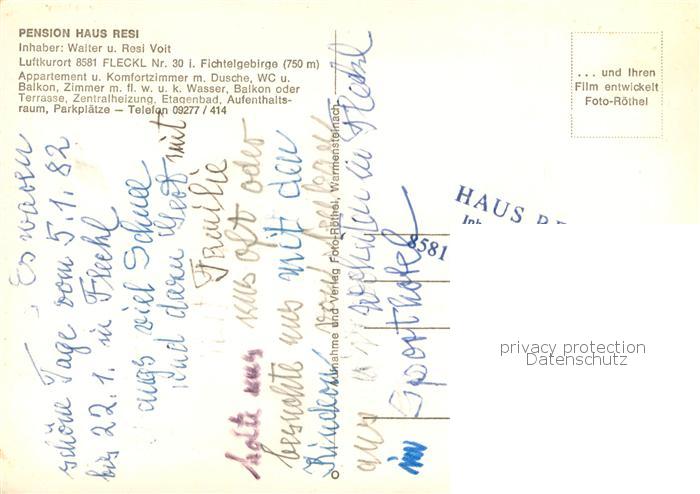 PENSION HAUS RESI
Inhaber: Walter u. Resi Voit
Luftkurort 8581 FLECKL Nr. 30 i. Fichtelgebirge (750 m)
Appartement u. Komfortzimmer m. Dusche, WC u.
Balkon, Zimmer m. fl. w. u. k. Wasser, Balkon oder
Terrasse, Zentralheizung, Etagenbad, Aufenthalts-
raum, Parkplätze — Telefon 09277 / 414
... und Ihren
Film entwickelt
Foto-Röthel
Aufnahme und Verlag Foto-Röthel, Warmensteinach
Es waren
schöne Tage vom 5.1.82
bis 22.1. in Fleckl
viel Schnee
und dann mit
Familie
uns oft oder
besuchte uns mit den
Kindern von
aus wohnten in Fleckl
im Sporthotel
HAUS RE
Inh
8581
privacy protection
Datenschutz